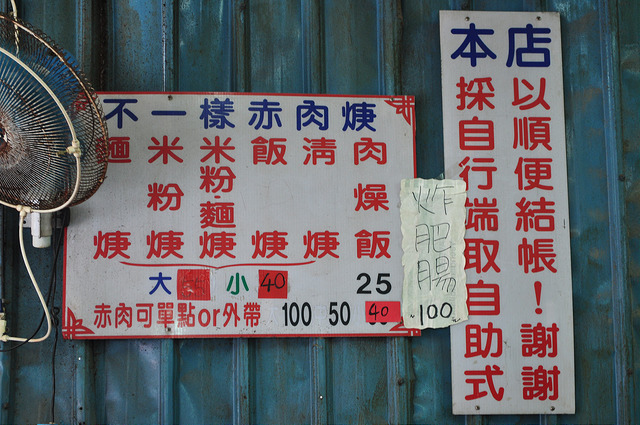 不一樣赤肉焿
麵焿
米粉焿
米粉·麵焿
飯焿
清焿
肉燥飯
大 小 40 25
赤肉可單點or外帶 100 50 40
炸肥腸
100
本店
採自行端取自助式
以順便結帳！謝謝